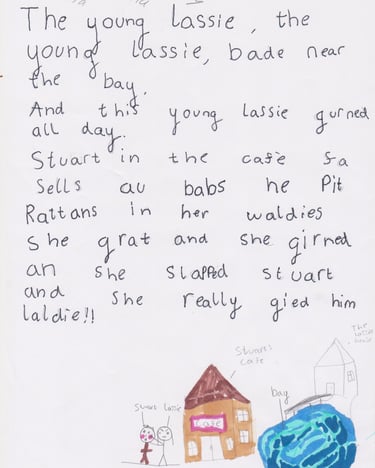 The young lassie, the
young lassie, bade near
the bay.
And this young lassie gurned
all day.
Stuart in the cafe fa
Sells au babs he Pit
Rattans in her waldies
She grat and she girned
an she slapped stuart
and she really gied him
laldie!!
Stuart's cafe
The lassies house
bay
Stuart lassie
Cafe